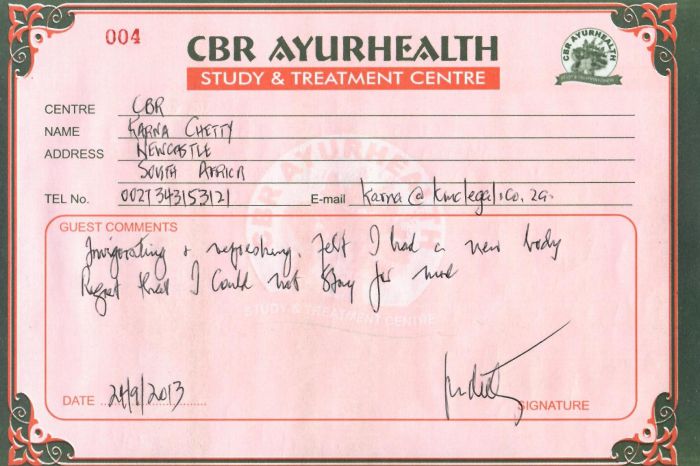 004
CBR AYURHEALTH
STUDY & TREATMENT CENTRE
CBR AYURHEALTH
STUDY & TREATMENT CENTRE
CENTRE CBR
NAME KARNA CHETTY
ADDRESS NEWCASTLE
SOUTH AFRICA
TEL No. 0027343153121 E-mail karna@kmclegal.co.za
GUEST COMMENTS
Invigorating & refreshing. Felt I had a new body
Regret that I could not stay for more
CBR AYURHEALTH
STUDY & TREATMENT CENTRE
DATE 24/9/2013
SIGNATURE